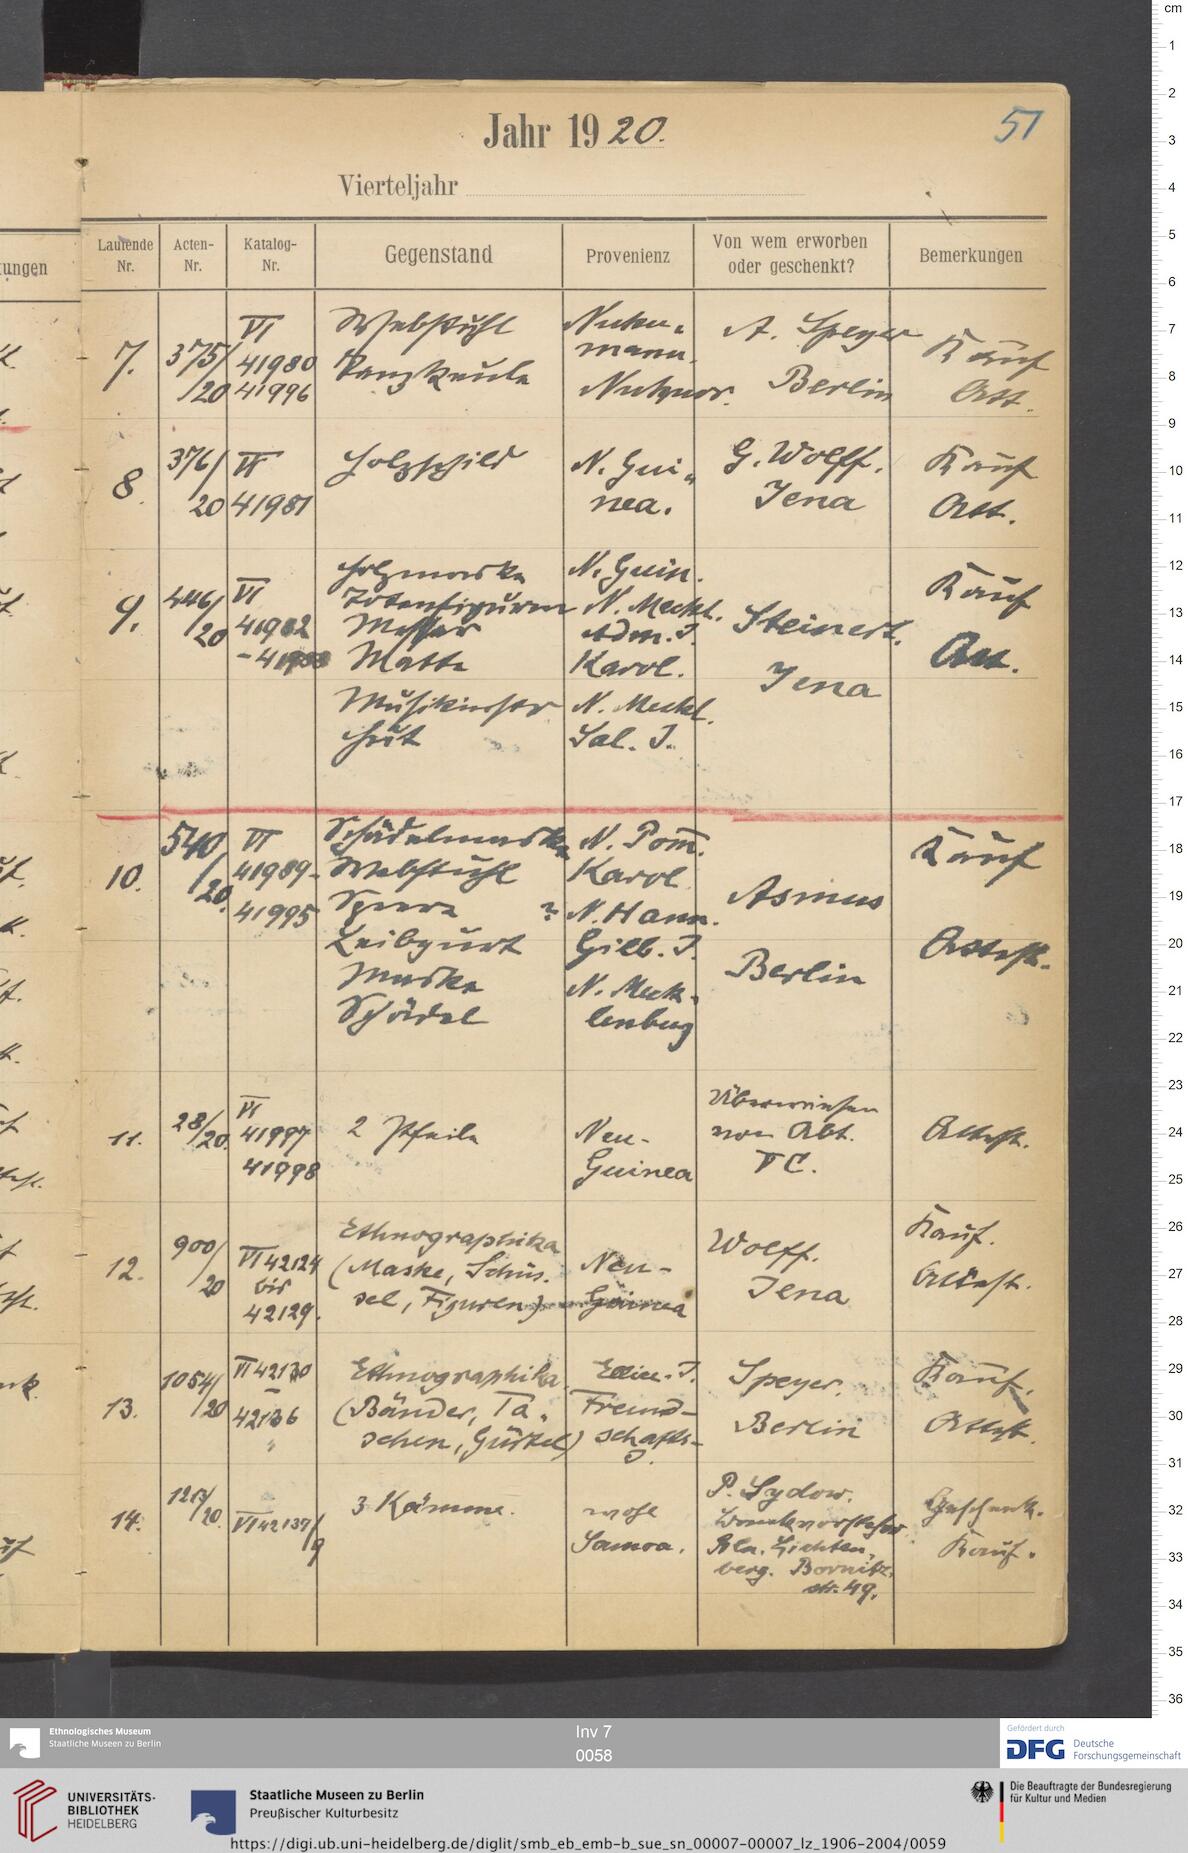 Jahr 1920.
51
Vierteljahr
Laufende Nr.
Acten-Nr.
Katalog-Nr.
Gegenstand
Provenienz
Von wem erworben oder geschenkt?
Bemerkungen
ungen
7.
375/20
VI 41980 41996
Webstuhl
Tanzkeule
A. Speyer
Berlin
Kauf
8.
376/20
VI 41981
Holzschild
N. Gui-
nea.
G. Wolff.
Jena
Kauf
9.
446/20
VI 41982
Holzmaske
Totenfiguren
Messer
Matte
Musikinstr
Hut
N. Guin.
N. Meckl.
Adm. I.
Karol.
N. Meckl.
Sal. I.
Steinert.
Jena
Kauf
10.
540/20.
VI 41989-
41995
Schädelmaske
Webstuhl
Speere ?
Leibgurt
Maske
Schädel
N. Pom̄.
Karol.
N. Hann.
Gilb. I.
N. Meck-
lenburg
Asmus
Berlin
Kauf
11.
28/20.
VI
41997
41998
2 Pfeile
Neu-
Guinea
Überwiesen
von Abt.
12.
900/20
VI 42124
bis
42129.
Ethnographika
(Maske, Schüs-
sel, Figuren)
Neu-
Guinea
Wolff.
Jena
Kauf.
13.
1054/20
VI 42130
-
42136
Ethnographika
(Bänder, Ta-
schen, Gürtel)
Ellice-I.
Freund-
schafts-
I.
Speyer.
Berlin
Kauf.
14.
VI 42137/9
3 Kämme.
wohl
Samoa.
P. Sydow.
Bln. Lichten-
berg. Bornitz-
str. 49.
Geschenk.
Kauf.
cm
1
2
3
4
5
6
7
8
9
10
11
12
13
14
15
16
17
18
19
20
21
22
23
24
25
26
27
28
29
30
31
32
33
34
35
36
Ethnologisches Museum
Staatliche Museen zu Berlin
Inv 7
0058
Gefördert durch
DFG Deutsche
Forschungsgemeinschaft
UNIVERSITÄTS-
BIBLIOTHEK
HEIDELBERG
Staatliche Museen zu Berlin
Preußischer Kulturbesitz
Die Beauftragte der Bundesregierung
für Kultur und Medien
https://digi.ub.uni-heidelberg.de/diglit/smb_eb_emb-b_sue_sn_00007-00007_lz_1906-2004/0059